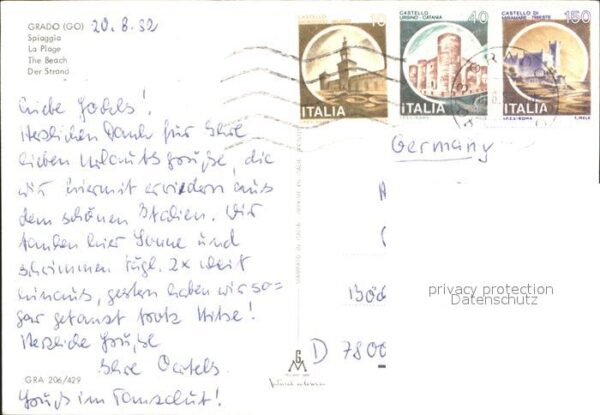 GRADO (GO) 20.8.82
Spiaggia
La Plage
The Beach
Der Strand
Liebe
Herzlichen Dank für Ihre
lieben Urlaubsgrüße, die
wir hiermit erwidern aus
dem schönen Italien. Wir
tanken hier Sonne und
schwimmen tägl. 2x weit
hinaus, gestern haben wir so=
gar getanzt trotz Hitze!
Herzliche Grüße
Ihre
GRA 206/429
10
ITALIA
CASTELLO
URSINO - CATANIA
40
ITALIA
CASTELLO DI
MIRAMARE - TRIESTE
150
ITALIA
I.P.Z.S. ROMA
Germany
privacy protection
Datenschutz
D 7800